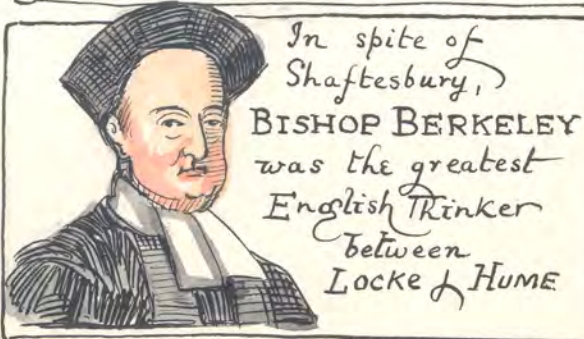 In spite of
Shaftesbury,
BISHOP BERKELEY
was the greatest
English Thinker
between
LOCKE & HUME